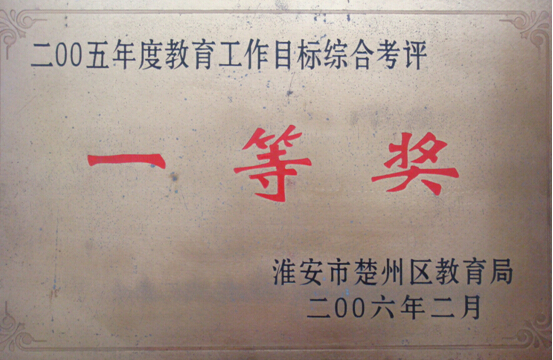 二00五年度教育工作目标综合考评
一等奖
淮安市楚州区教育局
二00六年二月